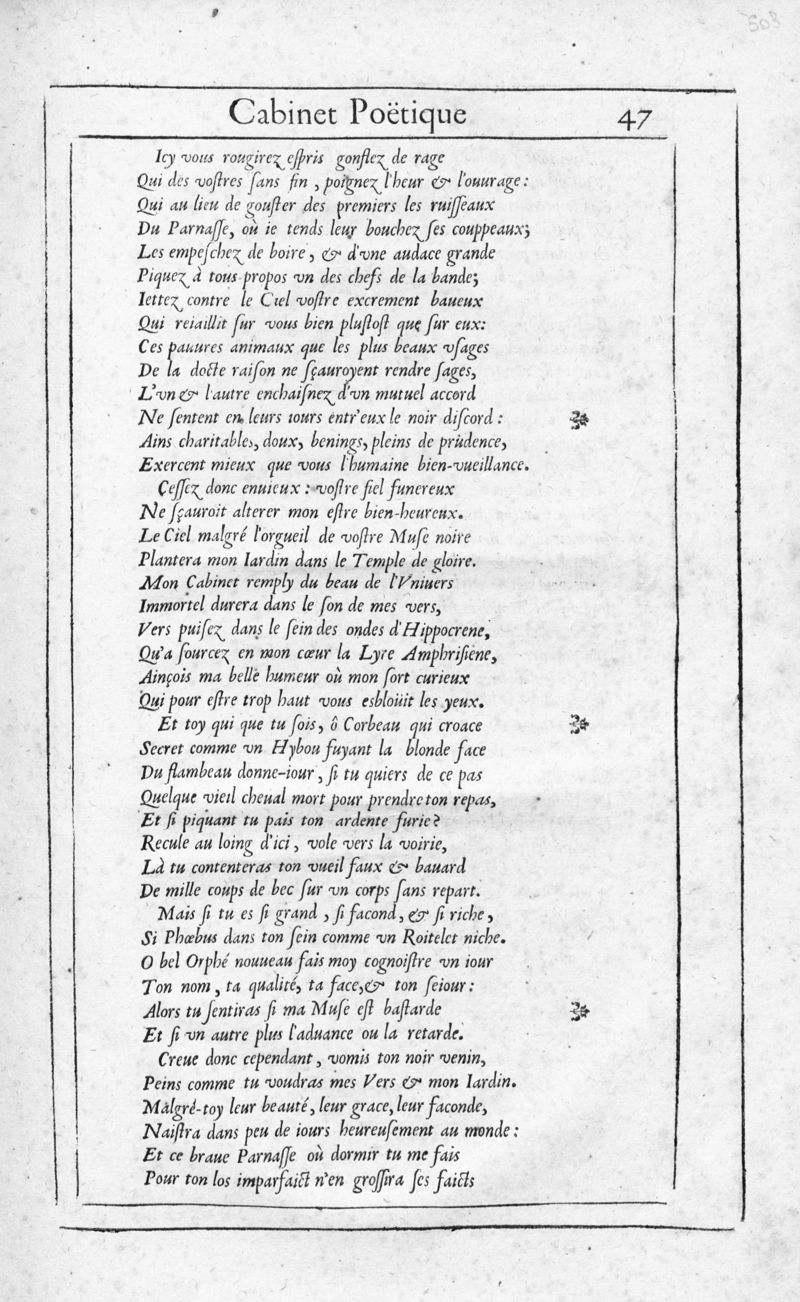 503
Cabinet Poëtique 47
Icy vous rougirez eſpris gonflez de rage
Qui des voſtres ſans fin , poignez l'heur & l'ouurage :
Qui au lieu de gouſter des premiers les ruiſſeaux
Du Parnaſſe, où ie tends leur bouchez ſes couppeaux;
Les empeſchez de boire , & d'vne audace grande
Piquez à tous propos vn des chefs de la bande;
Iettez contre le Ciel voſtre excrement baueux
Qui reiaillit ſur vous bien pluſtoſt que ſur eux:
Ces pauures animaux que les plus beaux vſages
De la docte raiſon ne ſçauroyent rendre ſages,
L'vn & l'autre enchaiſnez d'vn mutuel accord
Ne ſentent en leurs iours entr'eux le noir diſcord :
Ains charitables, doux, benings, pleins de prudence,
Exercent mieux que vous l'humaine bien-vueillance.
Ceſſez donc enuieux : voſtre fiel funereux
Ne ſçauroit alterer mon eſtre bien-heureux.
Le Ciel malgré l'orgueil de voſtre Muſe noire
Plantera mon Iardin dans le Temple de gloire.
Mon Cabinet remply du beau de l'Vniuers
Immortel durera dans le ſon de mes vers,
Vers puiſez dans le ſein des ondes d'Hippocrene,
Qu'a ſourcez en mon cœur la Lyre Amphriſiene,
Ainçois ma belle humeur où mon ſort curieux
Qui pour eſtre trop haut vous esbloüit les yeux.
Et toy qui que tu ſois, ô Corbeau qui croace
Secret comme vn Hybou fuyant la blonde face
Du flambeau donne-iour , ſi tu quiers de ce pas
Quelque vieil cheual mort pour prendre ton repas,
Et ſi piquant tu pais ton ardente furie ?
Recule au loing d'ici , vole vers la voirie,
Là tu contenteras ton vueil faux & bauard
De mille coups de bec ſur vn corps ſans repart.
Mais ſi tu es ſi grand , ſi facond, & ſi riche,
Si Phœbus dans ton ſein comme vn Roitelet niche.
O bel Orphé nouueau fais moy cognoiſtre vn iour
Ton nom , ta qualité, ta face,& ton ſeiour :
Alors tu ſentiras ſi ma Muſe eſt baſtarde
Et ſi vn autre plus l'aduance ou la retarde.
Creue donc cependant , vomis ton noir venin,
Peins comme tu voudras mes Vers & mon Iardin.
Malgré-toy leur beauté, leur grace, leur faconde,
Naiſtra dans peu de iours heureuſement au monde :
Et ce braue Parnaſſe où dormir tu me fais
Pour ton los imparfaict n'en groſſira ſes faicts